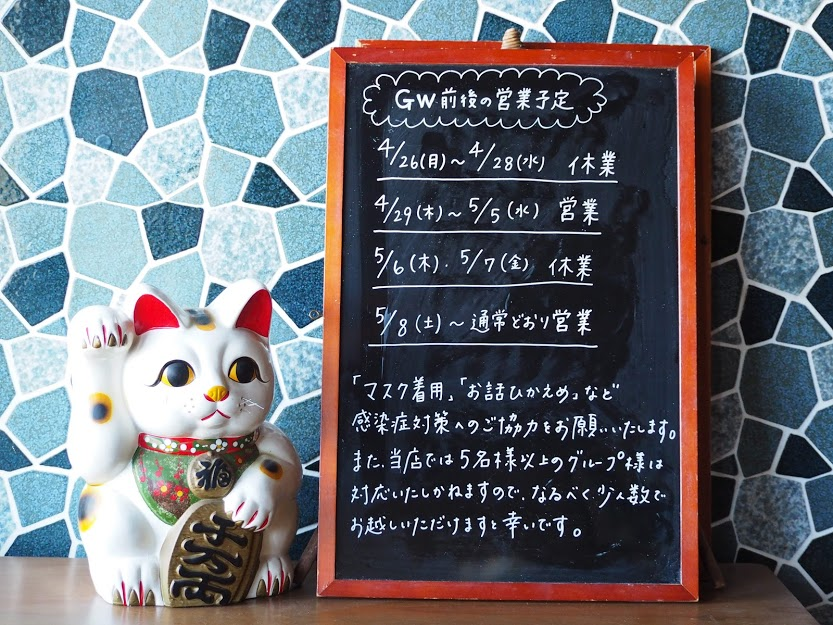 GW前後の営業予定
4/26(月)～4/28(水) 休業
4/29(木)～5/5(水) 営業
5/6(木)・5/7(金) 休業
5/8(土)～通常どおり営業
「マスク着用」「お話ひかえめ」など
感染症対策へのご協力をお願いいたします。
また、当店では5名様以上のグループ様は
対応いたしかねますので、なるべく少人数で
お越しいただけますと幸いです。
福